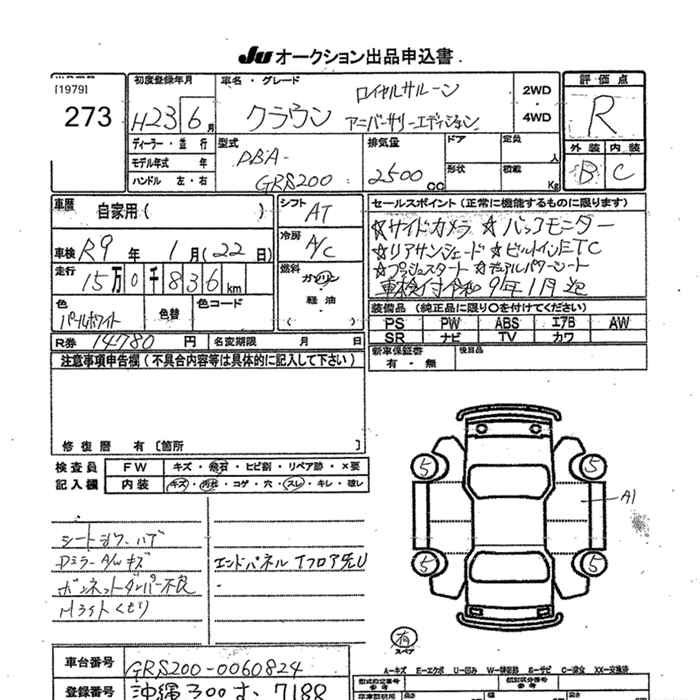 JU オークション出品申込書
[1979]
273
初度登録年月
H23 6 月
ディーラー・並行
モデル年式 年
ハンドル 左・右
車名・グレード
クラウン
ロイヤルサルーン
アニバーサリーエディション
2WD
・
4WD
型式
DBA-
GRS200
排気量
2500 cc
ドア
形状
定員
人
積載
Kg
評価点
R
外装 内装
B C
車歴
自家用( )
車検 R9 年 1 月(22 日)
走行 15万0千836 km
色
パールホワイト
色替
色コード
R券 14780 円
名変期限 月 日
シフト
AT
冷房
A/C
燃料
ガソリン
軽油
( )
セールスポイント(正常に機能するものに限ります)
☆サイドカメラ ☆バックモニター
☆リアサンシェード ☆ビルトインETC
☆プッシュスタート ☆デュアルパワーシート
車検付令和9年1月迄
装備品(純正品に限り○を付けてください)
PS PW ABS エアB AW
SR ナビ TV カワ
新車保証書
有・無
後日品
注意事項申告欄(不具合内容等は具体的に記入して下さい)
修復歴 有[箇所 ]
検査員
記入欄
FW キズ・飛石・ヒビ割・リペア跡・×要
内装 キズ・汚れ・コゲ・穴・スレ・キレ・破レ
シートシワ、ハゲ
Dミラー A/W キズ
ボンネットダンパー不良
Hライトくもり
エンドパネル Tフロア先U
5 5
A1
5 5
有
スペア
A-キズ E-エクボ U-凹み W-補修跡 S-サビ C-腐食 XX-交換済
車台番号 GRS200-0060824
登録番号 沖縄300す 7188
型式指定番号
類別区分番号